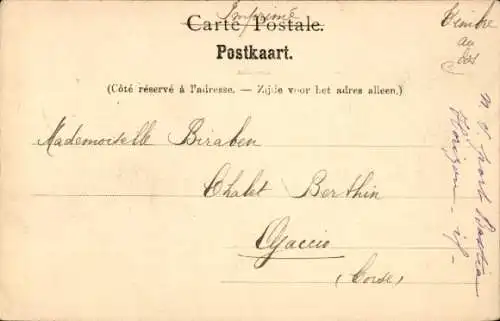 Imprimé
Carte Postale.
Postkaart.
(Côté réservé à l'adresse. — Zijde voor het adres alleen.)
Timbre
au
dos
Mademoiselle Biraben
Chalet Berthin
Ajaccio
(Corse)